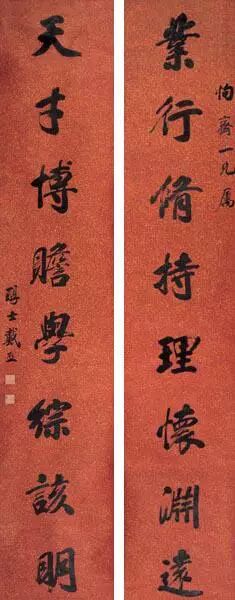 恂齋一兄属
業行脩持理懷淵遠
天才博贍學綜該明
醇士戴熙